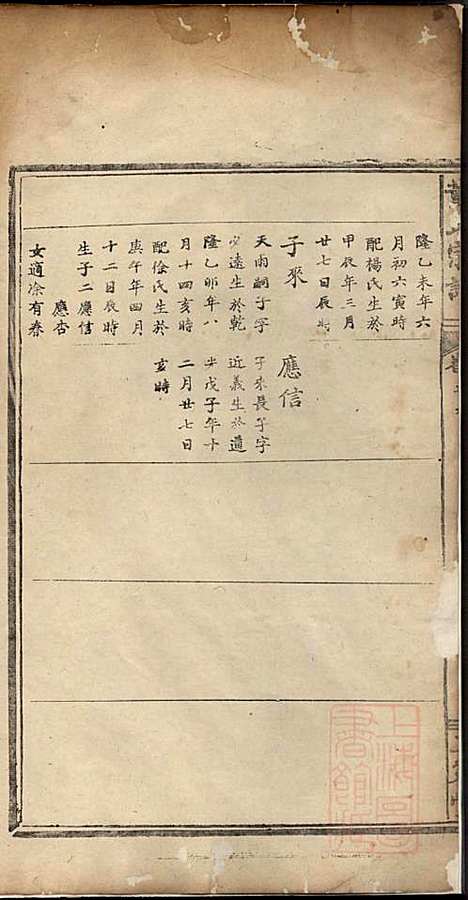 隆乙未年六
月初六寅時
配楊氏生於
甲辰年三月
廿七日辰時
子來
天雨嗣子字
必遠生於乾
隆乙卯年八
月十四亥時
配徐氏生於
庚午年四月
十二日辰時
生子二應信
應杏
女適凃有春
應信
子來長子字
近義生於道
光戊子年十
二月廿七日
亥時
上海圖
書館藏